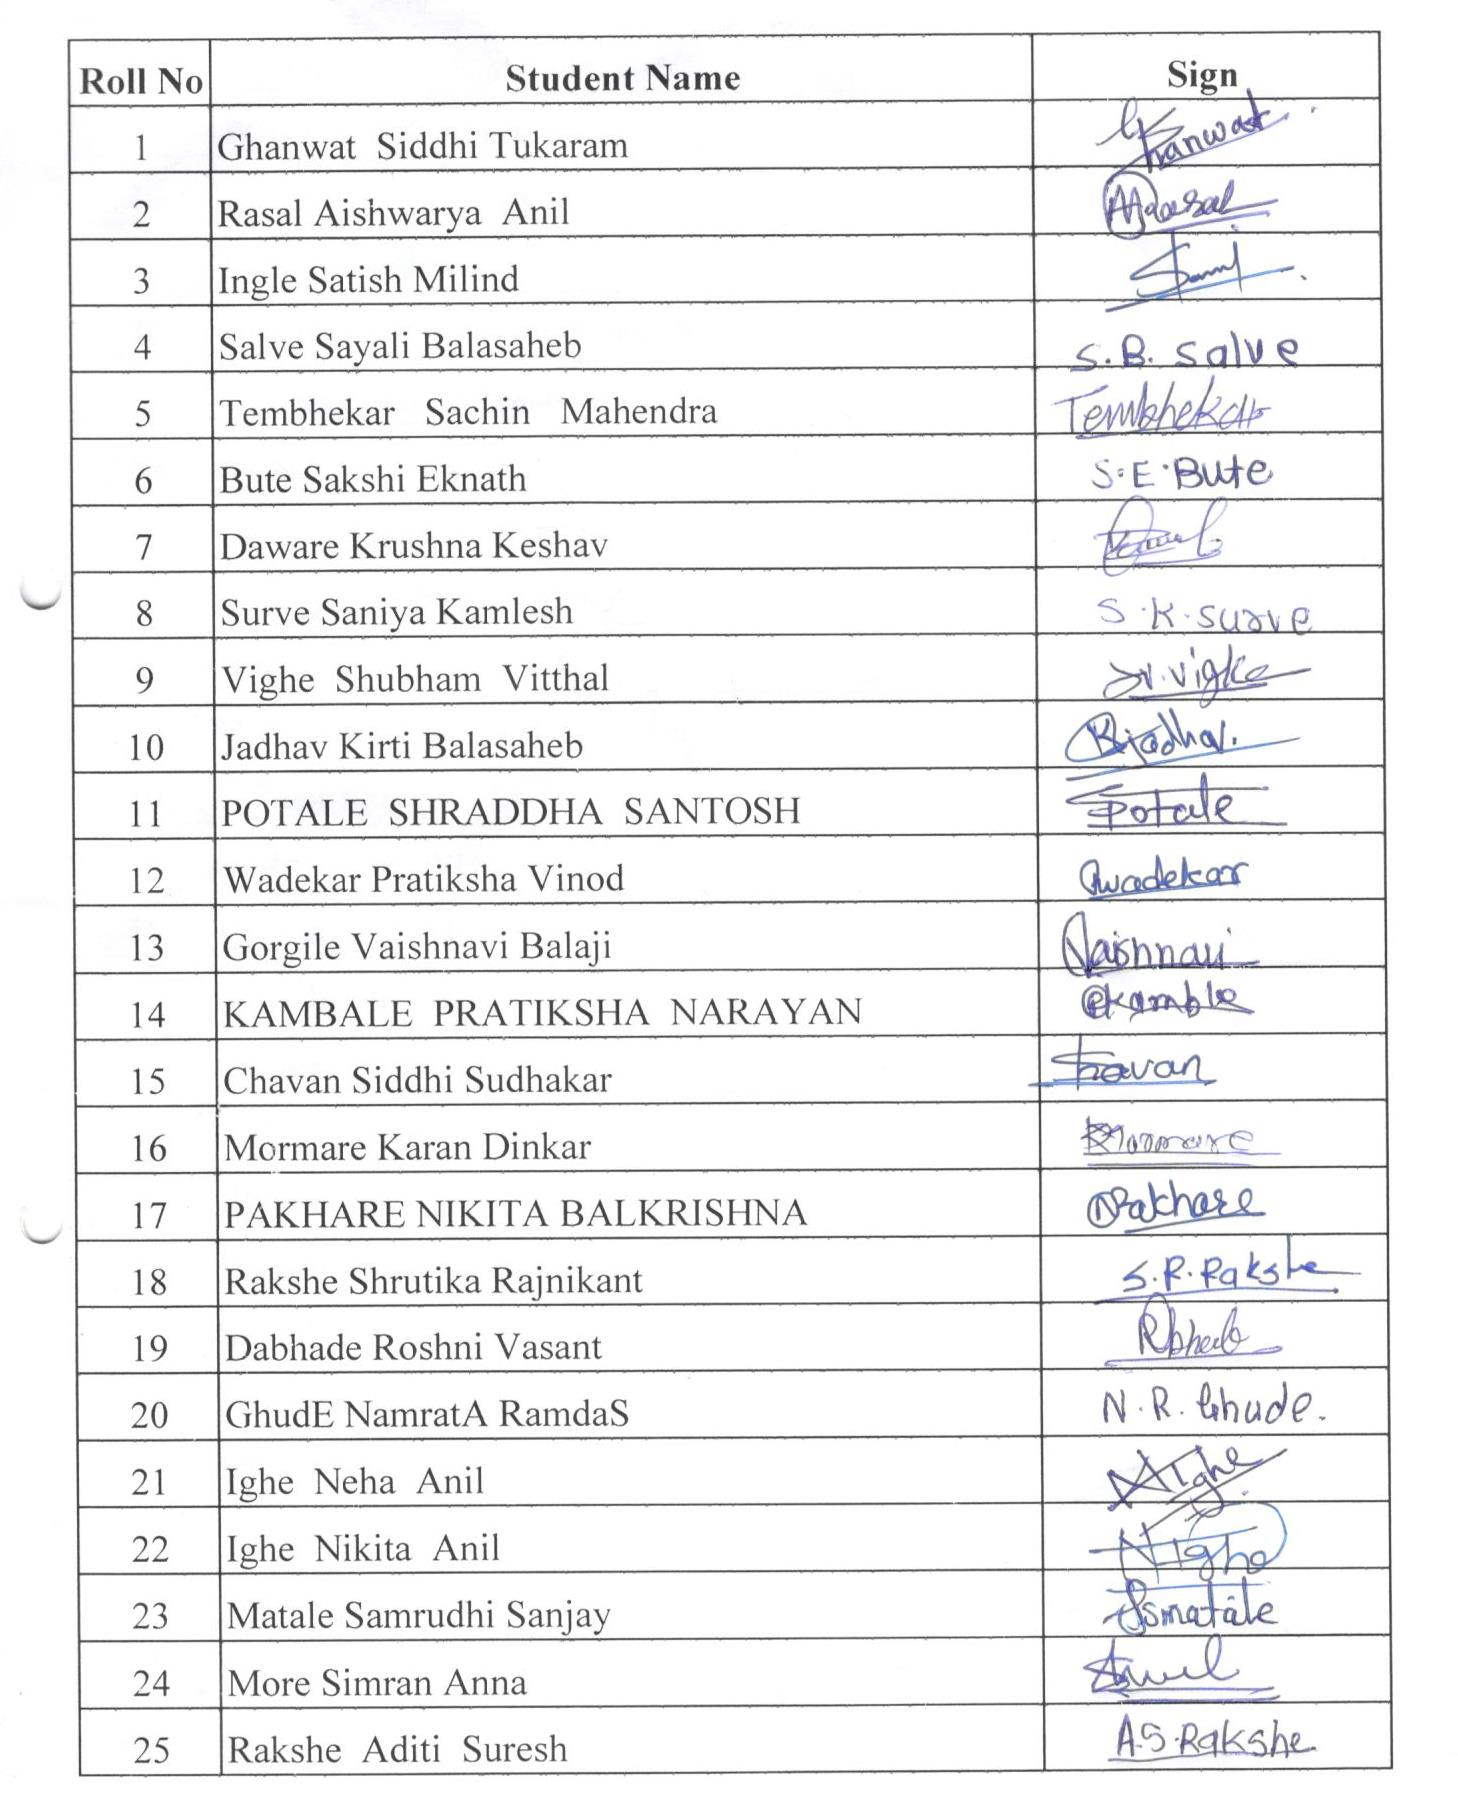 Roll No Student Name Sign
1 Ghanwat Siddhi Tukaram Ghanwat
2 Rasal Aishwarya Anil
3 Ingle Satish Milind
4 Salve Sayali Balasaheb S.B. Salve
5 Tembhekar Sachin Mahendra Tembhekar
6 Bute Sakshi Eknath S.E.Bute
7 Daware Krushna Keshav
8 Surve Saniya Kamlesh S.K.Surve
9 Vighe Shubham Vitthal
10 Jadhav Kirti Balasaheb KJadhav.
11 POTALE SHRADDHA SANTOSH Potale
12 Wadekar Pratiksha Vinod Pwadekar
13 Gorgile Vaishnavi Balaji Vaishnavi
14 KAMBALE PRATIKSHA NARAYAN Pkamble
15 Chavan Siddhi Sudhakar
16 Mormare Karan Dinkar KMormare
17 PAKHARE NIKITA BALKRISHNA NPakhare
18 Rakshe Shrutika Rajnikant S.R.Rakshe
19 Dabhade Roshni Vasant
20 GhudE NamratA RamdaS N.R.Ghude.
21 Ighe Neha Anil NAIghe
22 Ighe Nikita Anil NIghe
23 Matale Samrudhi Sanjay Ssmatale
24 More Simran Anna
25 Rakshe Aditi Suresh A.S.Rakshe